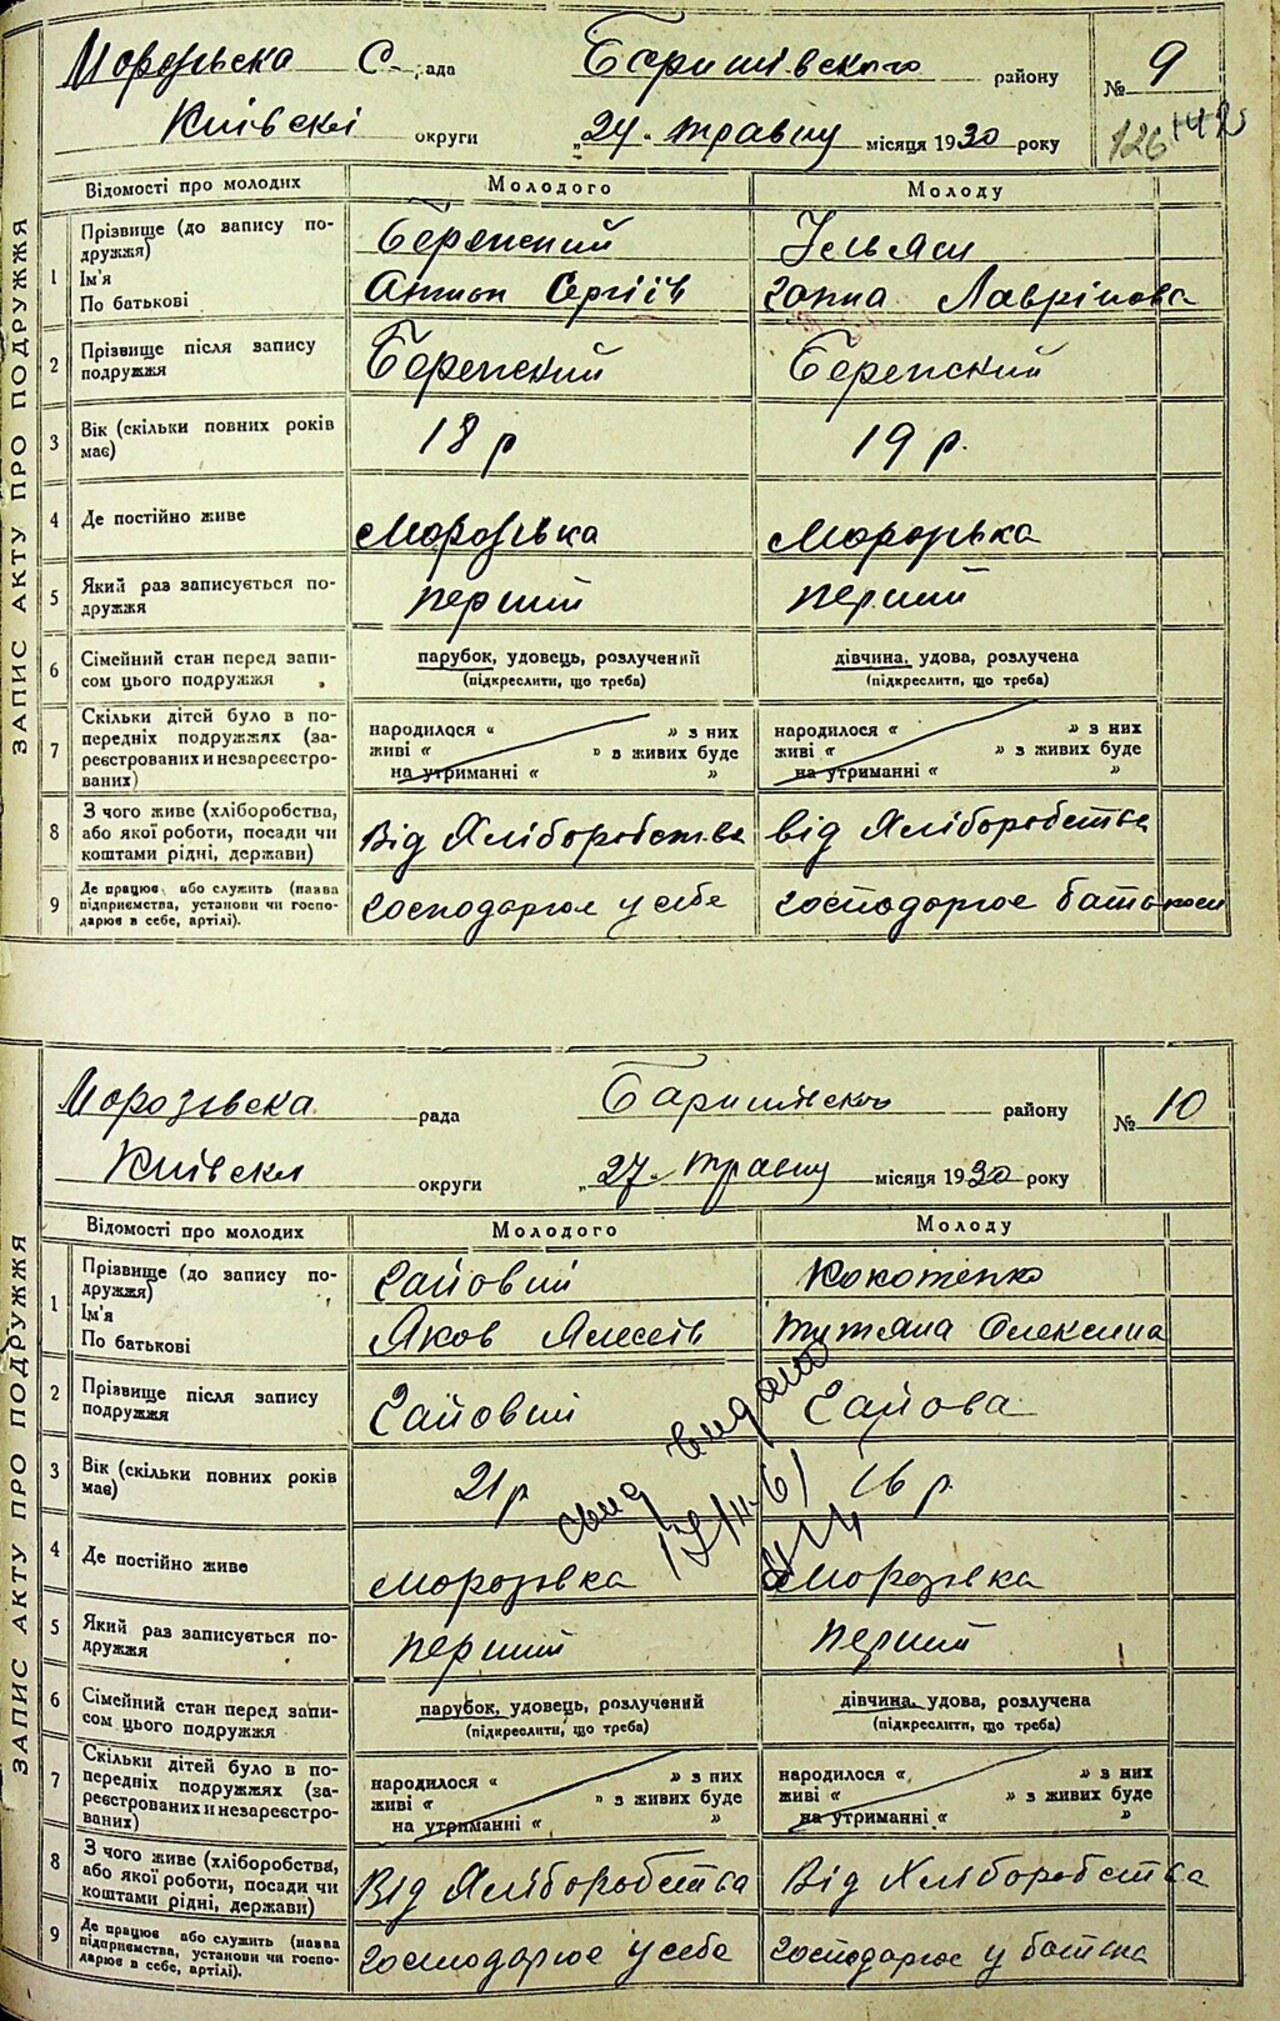 ЗАПИС АКТУ ПРО ПОДРУЖЖЯ
Морозівска С. рада Баришівского району № 9
Київскі округи „24“ травну місяця 1930 року
126 142
Відомості про молодих Молодого Молоду
1 Прізвище (до запису по-
дружжя)
Ім'я
По батькові
Беренский Ільяш
Антон Сергіїв Ганна Лаврінова
2 Прізвище після запису
подружжя
Беренский Беренский
3 Вік (скільки повних років
має)
18 р 19 р.
4 Де постійно живе Морозівка Морозівка
5 Який раз записується по-
дружжя
перший перший
6 Сімейний стан перед запи-
сом цього подружжя
парубок, удовець, розлучений дівчина, удова, розлучена
(підкреслити, що треба) (підкреслити, що треба)
7 Скільки дітей було в по-
передніх подружжях (за-
реєстрованих и незареєстро-
ваних)
народилося « » з них народилося « » з них
живі « » з живих буде живі « » з живих буде
на утриманні « » на утриманні « »
8 З чого живе (хліборобства,
або якої роботи, посади чи
коштами рідні, держави)
Від Хліборобства від Хліборобства
9 Де працює або служить (назва
підприємства, установи чи госпо-
дарює в себе, артілі).
господарює у себе господорює батькоси
ЗАПИС АКТУ ПРО ПОДРУЖЖЯ
Морозівска рада Баришівского району № 10
Київскі округи „27“ травну місяця 1930 року
Відомості про молодих Молодого Молоду
1 Прізвище (до запису по-
дружжя)
Ім'я
По батькові
Гайовий Кокотенко
Яков Алесеів Тутяна Олексина
2 Прізвище після запису
подружжя
Гайовий Гайова
3 Вік (скільки повних років
має)
21 р 16 р.
свид видано
4 Де постійно живе Морозівка Морозівка
5 Який раз записується по-
дружжя
перший перший
6 Сімейний стан перед запи-
сом цього подружжя
парубок, удовець, розлучений дівчина, удова, розлучена
(підкреслити, що треба) (підкреслити, що треба)
7 Скільки дітей було в по-
передніх подружжях (за-
реєстрованих и незареєстро-
ваних)
народилося « » з них народилося « » з них
живі « » з живих буде живі « » з живих буде
на утриманні « » на утриманні « »
8 З чого живе (хліборобства,
або якої роботи, посади чи
коштами рідні, держави)
Від Хліборобства Від Хліборобства
9 Де працює або служить (назва
підприємства, установи чи госпо-
дарює в себе, артілі).
господорює у себе господарює у батька